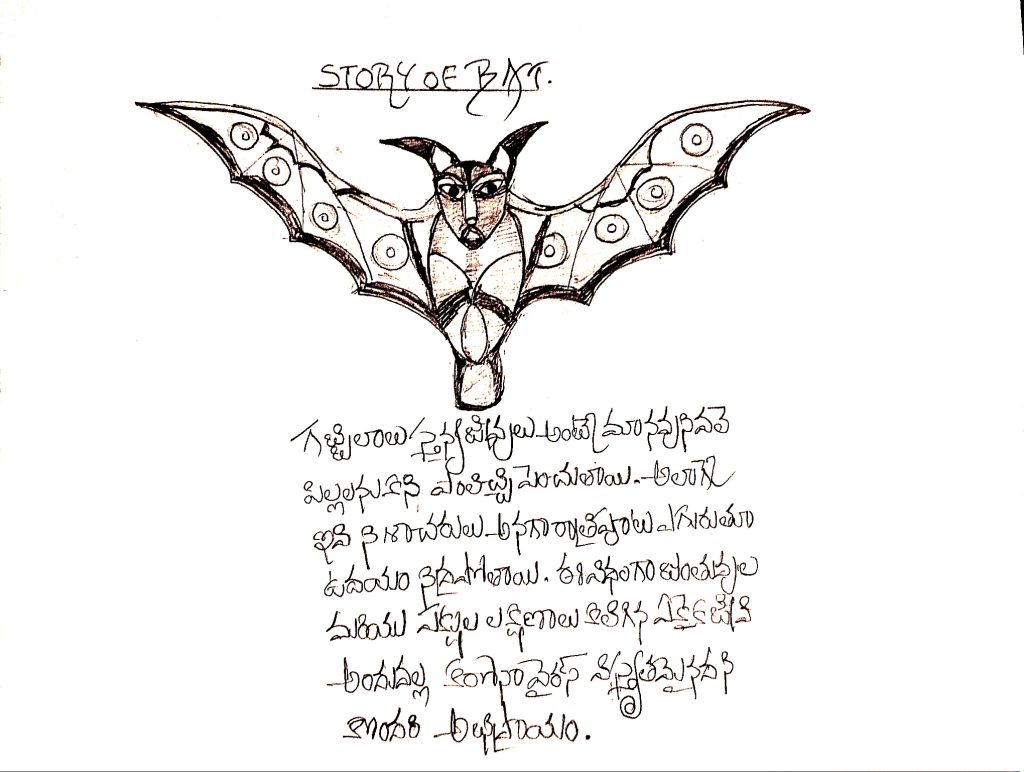 STORY OF BAT.
గబ్బిలాలు స్తన్యజీవులు అంటే మానవునివలె
పిల్లలనుకని పాలిచ్చి పెంచుతాయి. అలాగే
ఇవి నిశాచరులు అనగా రాత్రిపూట ఎగురుతూ
ఉదయం నిద్రపోతాయి. ఈవిధంగా జంతువుల
మరియు పక్షుల లక్షణాలు కలిగిన ఏకైక జీవి
అందువల్ల కరోనా వైరస్ విస్తృతమైనదని
కొందరి అభిప్రాయం.